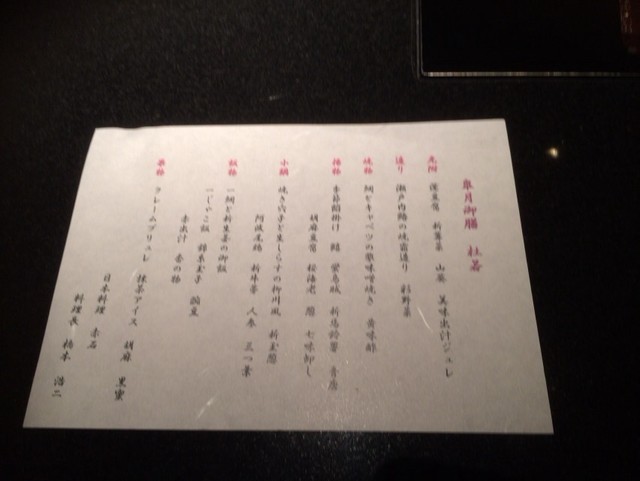 皐月御膳 杜若
先附 湯葉豆腐 新蓴菜 山葵 美味出汁ジュレ
造り 瀬戸内鰆の焼霜造り 彩野菜
焼物 鯛とキャベツの蕗味噌焼き 黄味酢
揚物 季節餡掛け 鱧 蟹真蒸 新馬鈴薯 青唐
胡麻豆腐 桜海老 葱 七味卸し
小鍋 焼き穴子と生しらすの柳川風 新玉葱
阿波尾鶏 新牛蒡 人参 三つ葉
飯物 一鯛と新生姜の御飯
一じゃこ飯 錦糸玉子
赤出汁 香の物
果物 クレームブリュレ 抹茶アイス 胡麻 黒蜜
日本料理 赤石
料理長 橋本 浩二